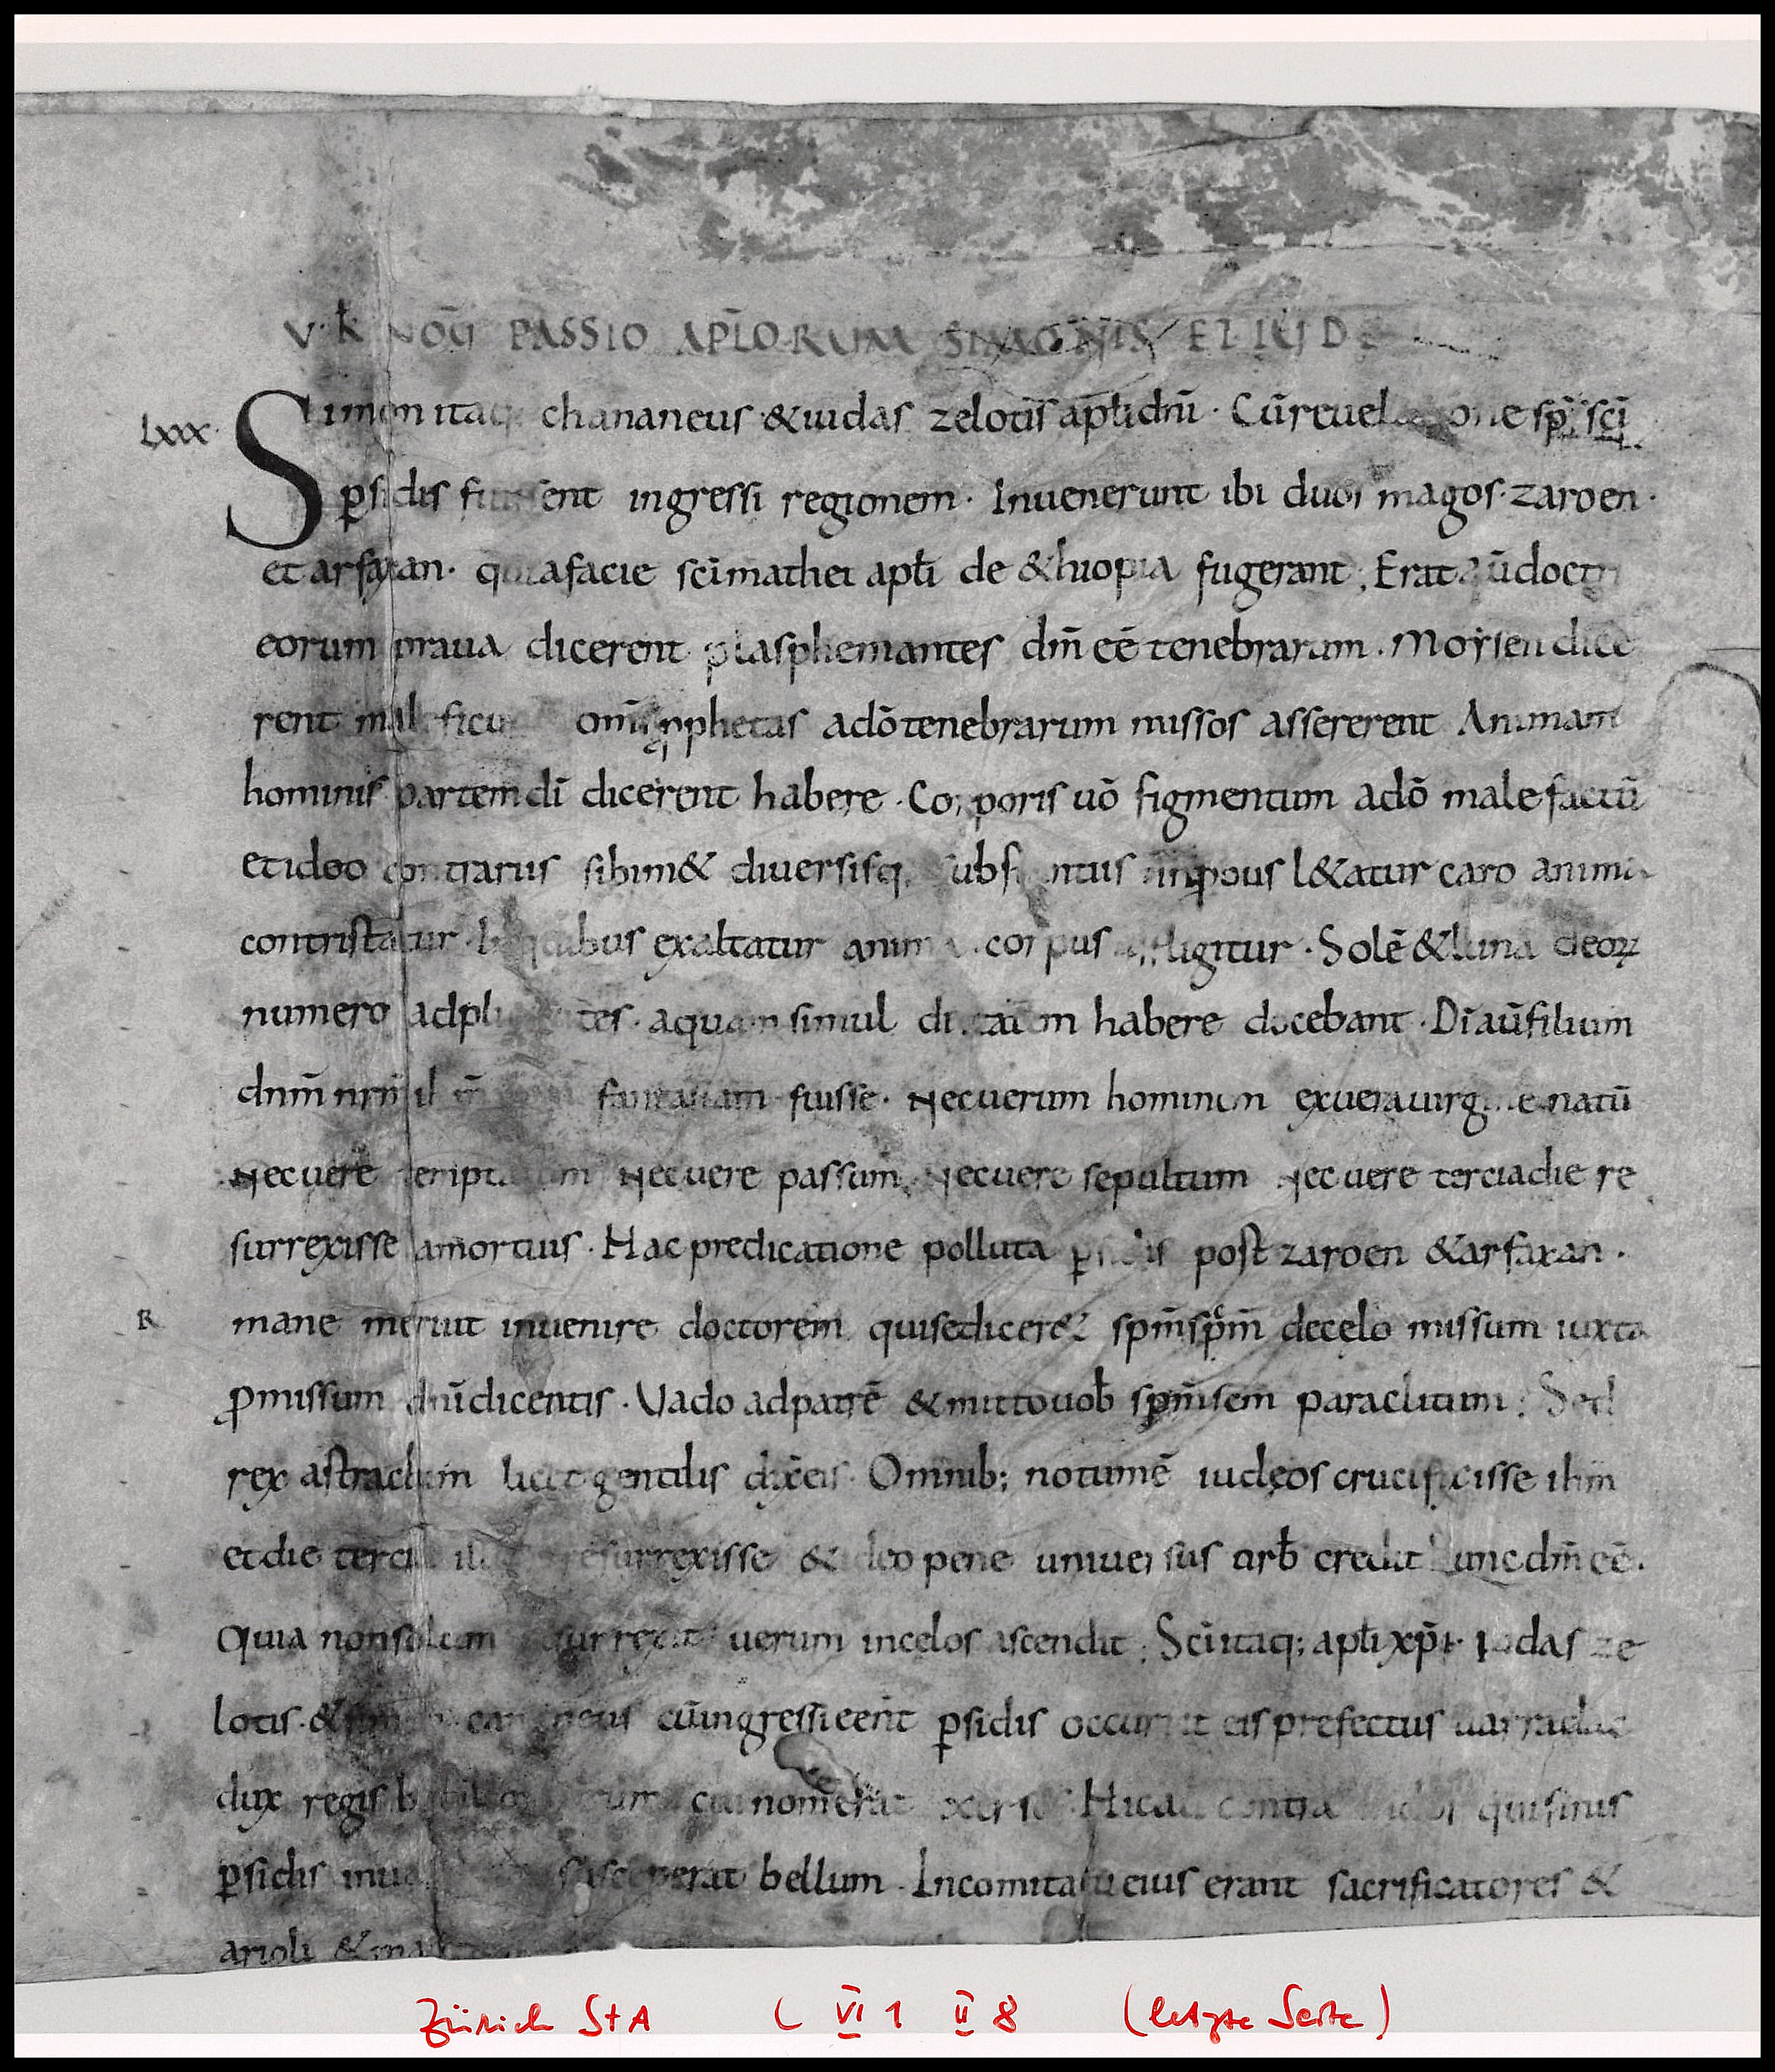 V · K̄ NOV̄ PASSIO AP̄LORUM SIMONIS ET IUD
Lxxx
Simon itaq; chananeus & iudas zelotis apl̄i dn̄i · Cū reuelatione sp̄s sc̄i
ꝑsidis fuissent ingressi regionem · Inuenerunt ibi duos magos · zaroen ·
et arfaxan · qui a facie sc̄i mathei apl̄i de &hiopia fugerant ; Erat aū doctri
eorum praua dicerent plasphemantes dm̄ eē tenebrarum . Moysen dice
rent maleficum om̄sq; pphetas a dō tenebrarum missos assererent Animam
hominis partem dī dicerent habere · Corporis uō figmentum a dō male factū
et ideo contrariis sibim& diuersisq; substantiis l&atur caro anima
contristatur exaltatur anima . corpus affligitur · Solē & luna deoꝝ
numero adplicantes · aquam simul habere docebant · Dī aū filium
dnm̄ nrm̄ fantasiam fuisse · Nec uerum hominem ex uera uirgine natū
Nec uere temptatum Nec uere passum, Nec uere sepultum Nec uere tercia die re
surrexisse a mortuis · Hac predicatione polluta ꝑsidis post zaroen & arfaxan ·
R mane meruit inuenire doctorem qui se dicer& sp̄m decelo missum iuxta
ꝓmissum dn̄i dicentis · Vado ad patrē & mitto uob̄ sp̄m sc̄m paraclitum ; Sed
rex astrachim licet gentilis Omnib; notum ē iudęos crucifixisse ihm̄
et die tercia resurrexisse & ideo pene uniuersus orb̄ credit hunc dm̄ eē .
Quia non solum resurrexit uerum in celos ascendit ; Sc̄i itaq; apl̄i xp̄i · Iudas ze
lotis · & simon cananeus cū ingressi eent̄ ꝑsidis occurrit eis prefectus uarradac
dux regis babiloniorum cui nom̄ erat xerxes · Hic contra indos qui finis
ꝑsidis susceperat bellum · In comitatu eius erant sacrificatores &
arioli &
Zürich StA ( VI 1 II 8 (letzte Seite)